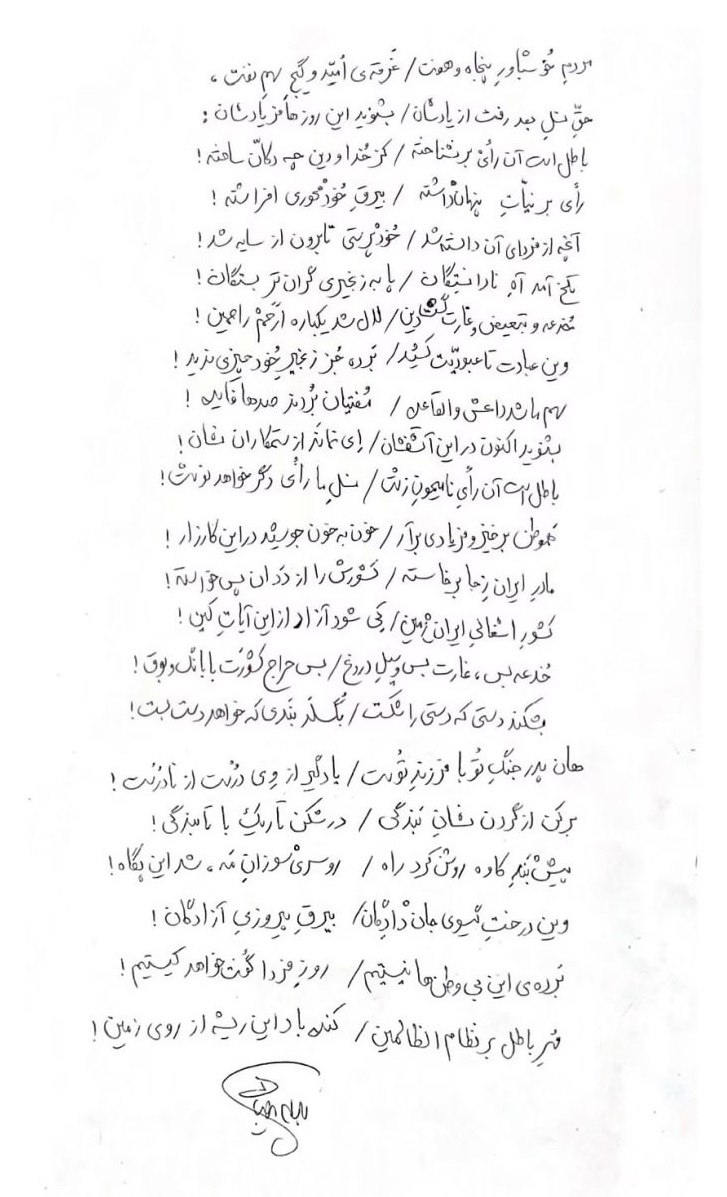 مردمِ خوش‌باورِ پنجاه و هفت / غَرقه‌ی اُمیّد و گیجِ سهمِ نفت ،
حقِّ نسلِ بعد رفت از یادشان / بشنوید این روزها فریادشان :
باطل است آن رأیِ برنشناخته / کز خُدا و دین چه دکّان ساخته !
رأی بر نیّاتِ پنهان‌داشته / بیرقِ خُودمحوری افراشته !
آنچه از فردای آن دانسته شد / خُودپرستی تا برون از سایه شد !
تلخ آمد آهِ نادانستگان / پا به زنجیری گران‌تر بستگان !
خُدعه و تبعیض و غارت گشت دین / لال شد یکباره اَرحَمْ راحمین !
وین عبادت تا عبودیّت کشید / بَرده جُز زنجیرِ خُود چیزی ندید !
سهم ما شد داعش و القاعده / مُفتیان بُردند صدها فایده !
بشنوید اکنون در این آتشفشان / اِی نماند از ستمکاران نشان !
باطل است آن رأیِ نامیمونِ زشت / نسلِ ما رأی دگر خواهد نوشت !
هموطن برخیز و فریادی برآر / خون به خون جوشید در این کارزار !
مادرِ ایران زِ جا برخاسته / کشورش را از دَدان پس خواسته !
کشورِ اشغالیِ ایران‌زمین / کِی شود آزاد از این آیاتِ کین !
خُدعه بس ، غارت بس و سیلِ دروغ / بس حراجِ کشورَت با بانگ و بوق !
بشکند دستی که دستی را شکست / بُگسلَد بَندی که خواهد دست بست !
هان پدر جنگِ تُو با فرزندِ تُوست / یاد گیر از وِی دُرُست از نادُرُست !
برکن از گردن نشانِ بَندگی / درشکن تاریک با تابندگی !
پیش‌بَندِ کاوه روشن کرد راه / روسریْ سوزانِ مَه ، شد این پگاه !
وین درختِ گیسویِ جان‌دادِگان / بیرقِ پیروزیِ آزادگان !
بَرده‌ی این بی‌وطن‌ها نیستیم / روزِ فردا گُفت خواهد کیستیم !
مُهرِ باطل بر نظامِ الظالمین / کنده باد این ریشه از روی زمین !